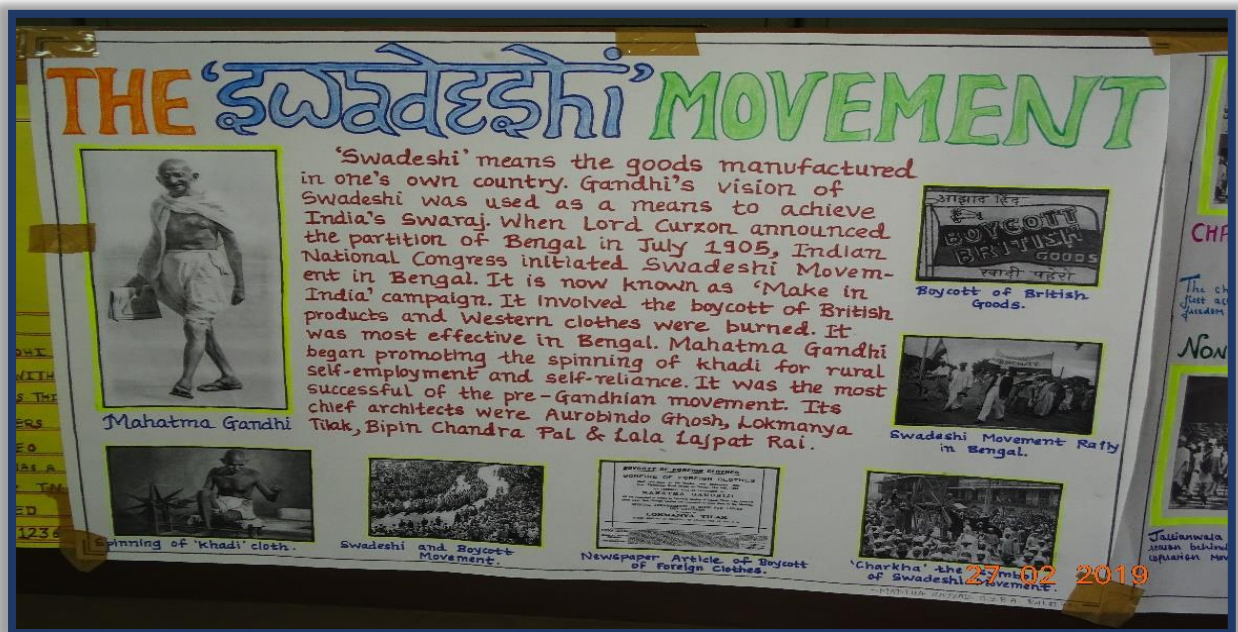 THE 'Swadeshi' MOVEMENT
'Swadeshi' means the goods manufactured
in one's own country. Gandhi's vision of
Swadeshi was used as a means to achieve
India's Swaraj. When Lord Curzon announced
the partition of Bengal in July 1905, Indian
National Congress initiated Swadeshi Movem-
ent in Bengal. It is now known as 'Make in
India' campaign. It involved the boycott of British
products and Western clothes were burned. It
was most effective in Bengal. Mahatma Gandhi
began promoting the spinning of khadi for rural
self-employment and self-reliance. It was the most
successful of the pre-Gandhian movement. Its
chief architects were Aurobindo Ghosh, Lokmanya
Tilak, Bipin Chandra Pal & Lala Lajpat Rai.
Mahatma Gandhi
आझाद हिंद
BOYCOTT
BRITISH
GOODS
Boycott of British
Goods.
Swadeshi Movement Rally
in Bengal.
Spinning of 'khadi' cloth.
Swadeshi and Boycott
Movement.
BOYCOTT OF FOREIGN CLOTHES
BONFIRE OF FOREIGN CLOTHES
MAHATMA GANDHIJI
LOKMANYA TILAK
Newspaper Article of Boycott
of Foreign Clothes.
'Charkha' the Symb
of Swadeshi Movement.
27 02 2019
CHP
The ch
just ac
freedom
NON
Jallianwala
reason behind
WITH
ERS
ED
1236